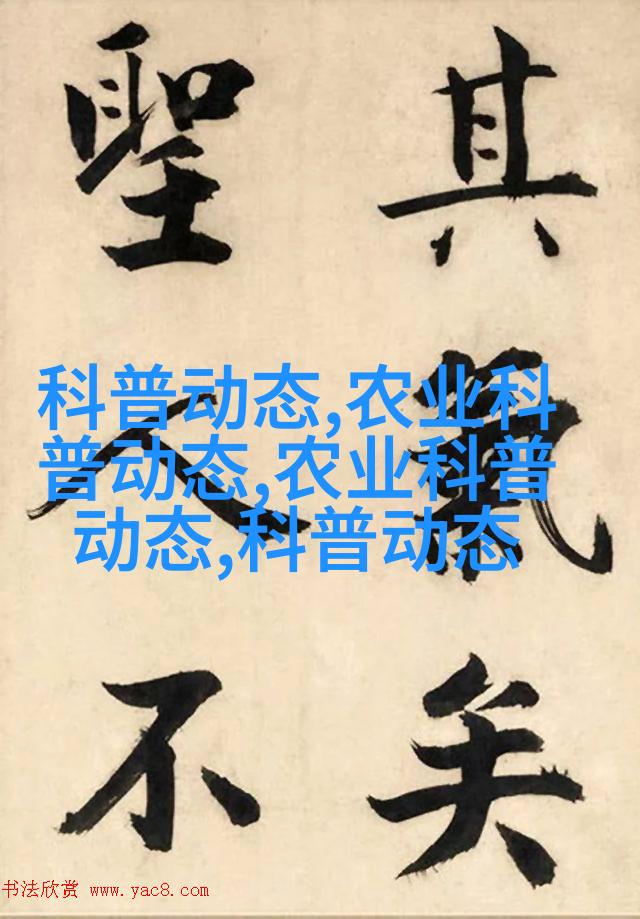 其矣
聖人不
科普动态,农业科
普动态,农业科普
动态,科普动态
书法欣赏 www.yac8.com